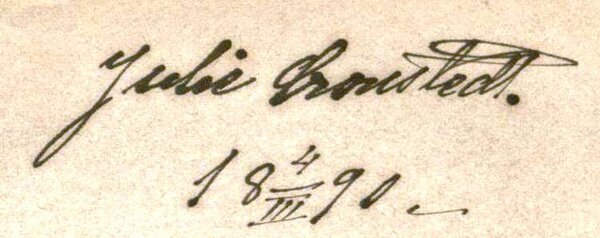 Julie Cronstedt.
18 4/III 90.